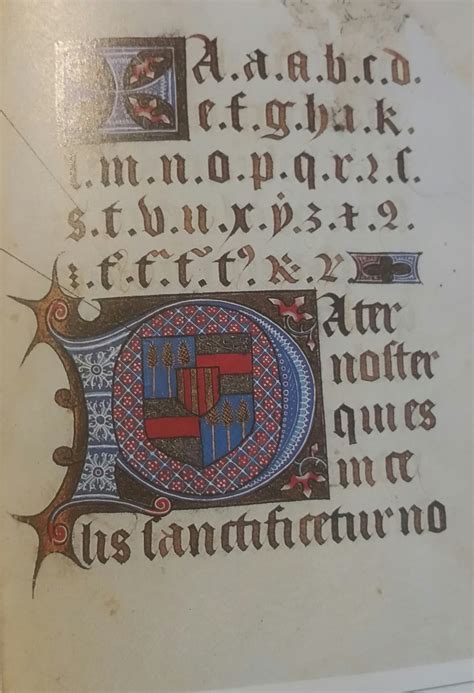 ✠ A.a.a.b.c.d.
e.f.g.h.k.
l.m.n.o.p.q.r.ꝛ.ſ.
s.t.v.u.x.ẏ.z.
Pater
noſter
qui es
in ce
lis ſanctificetur no